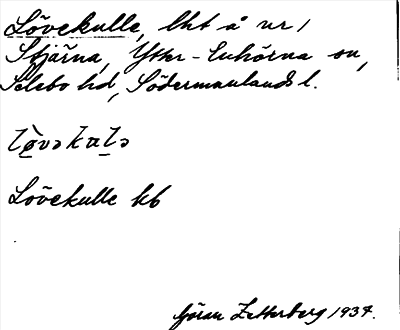 Lövekulle, lht å nr 1
Stjärna, Ytter-Enhörna sn,
Selebo hd, Södermanlands l.
Lövekulle kb
Göran Zetterberg 1934.